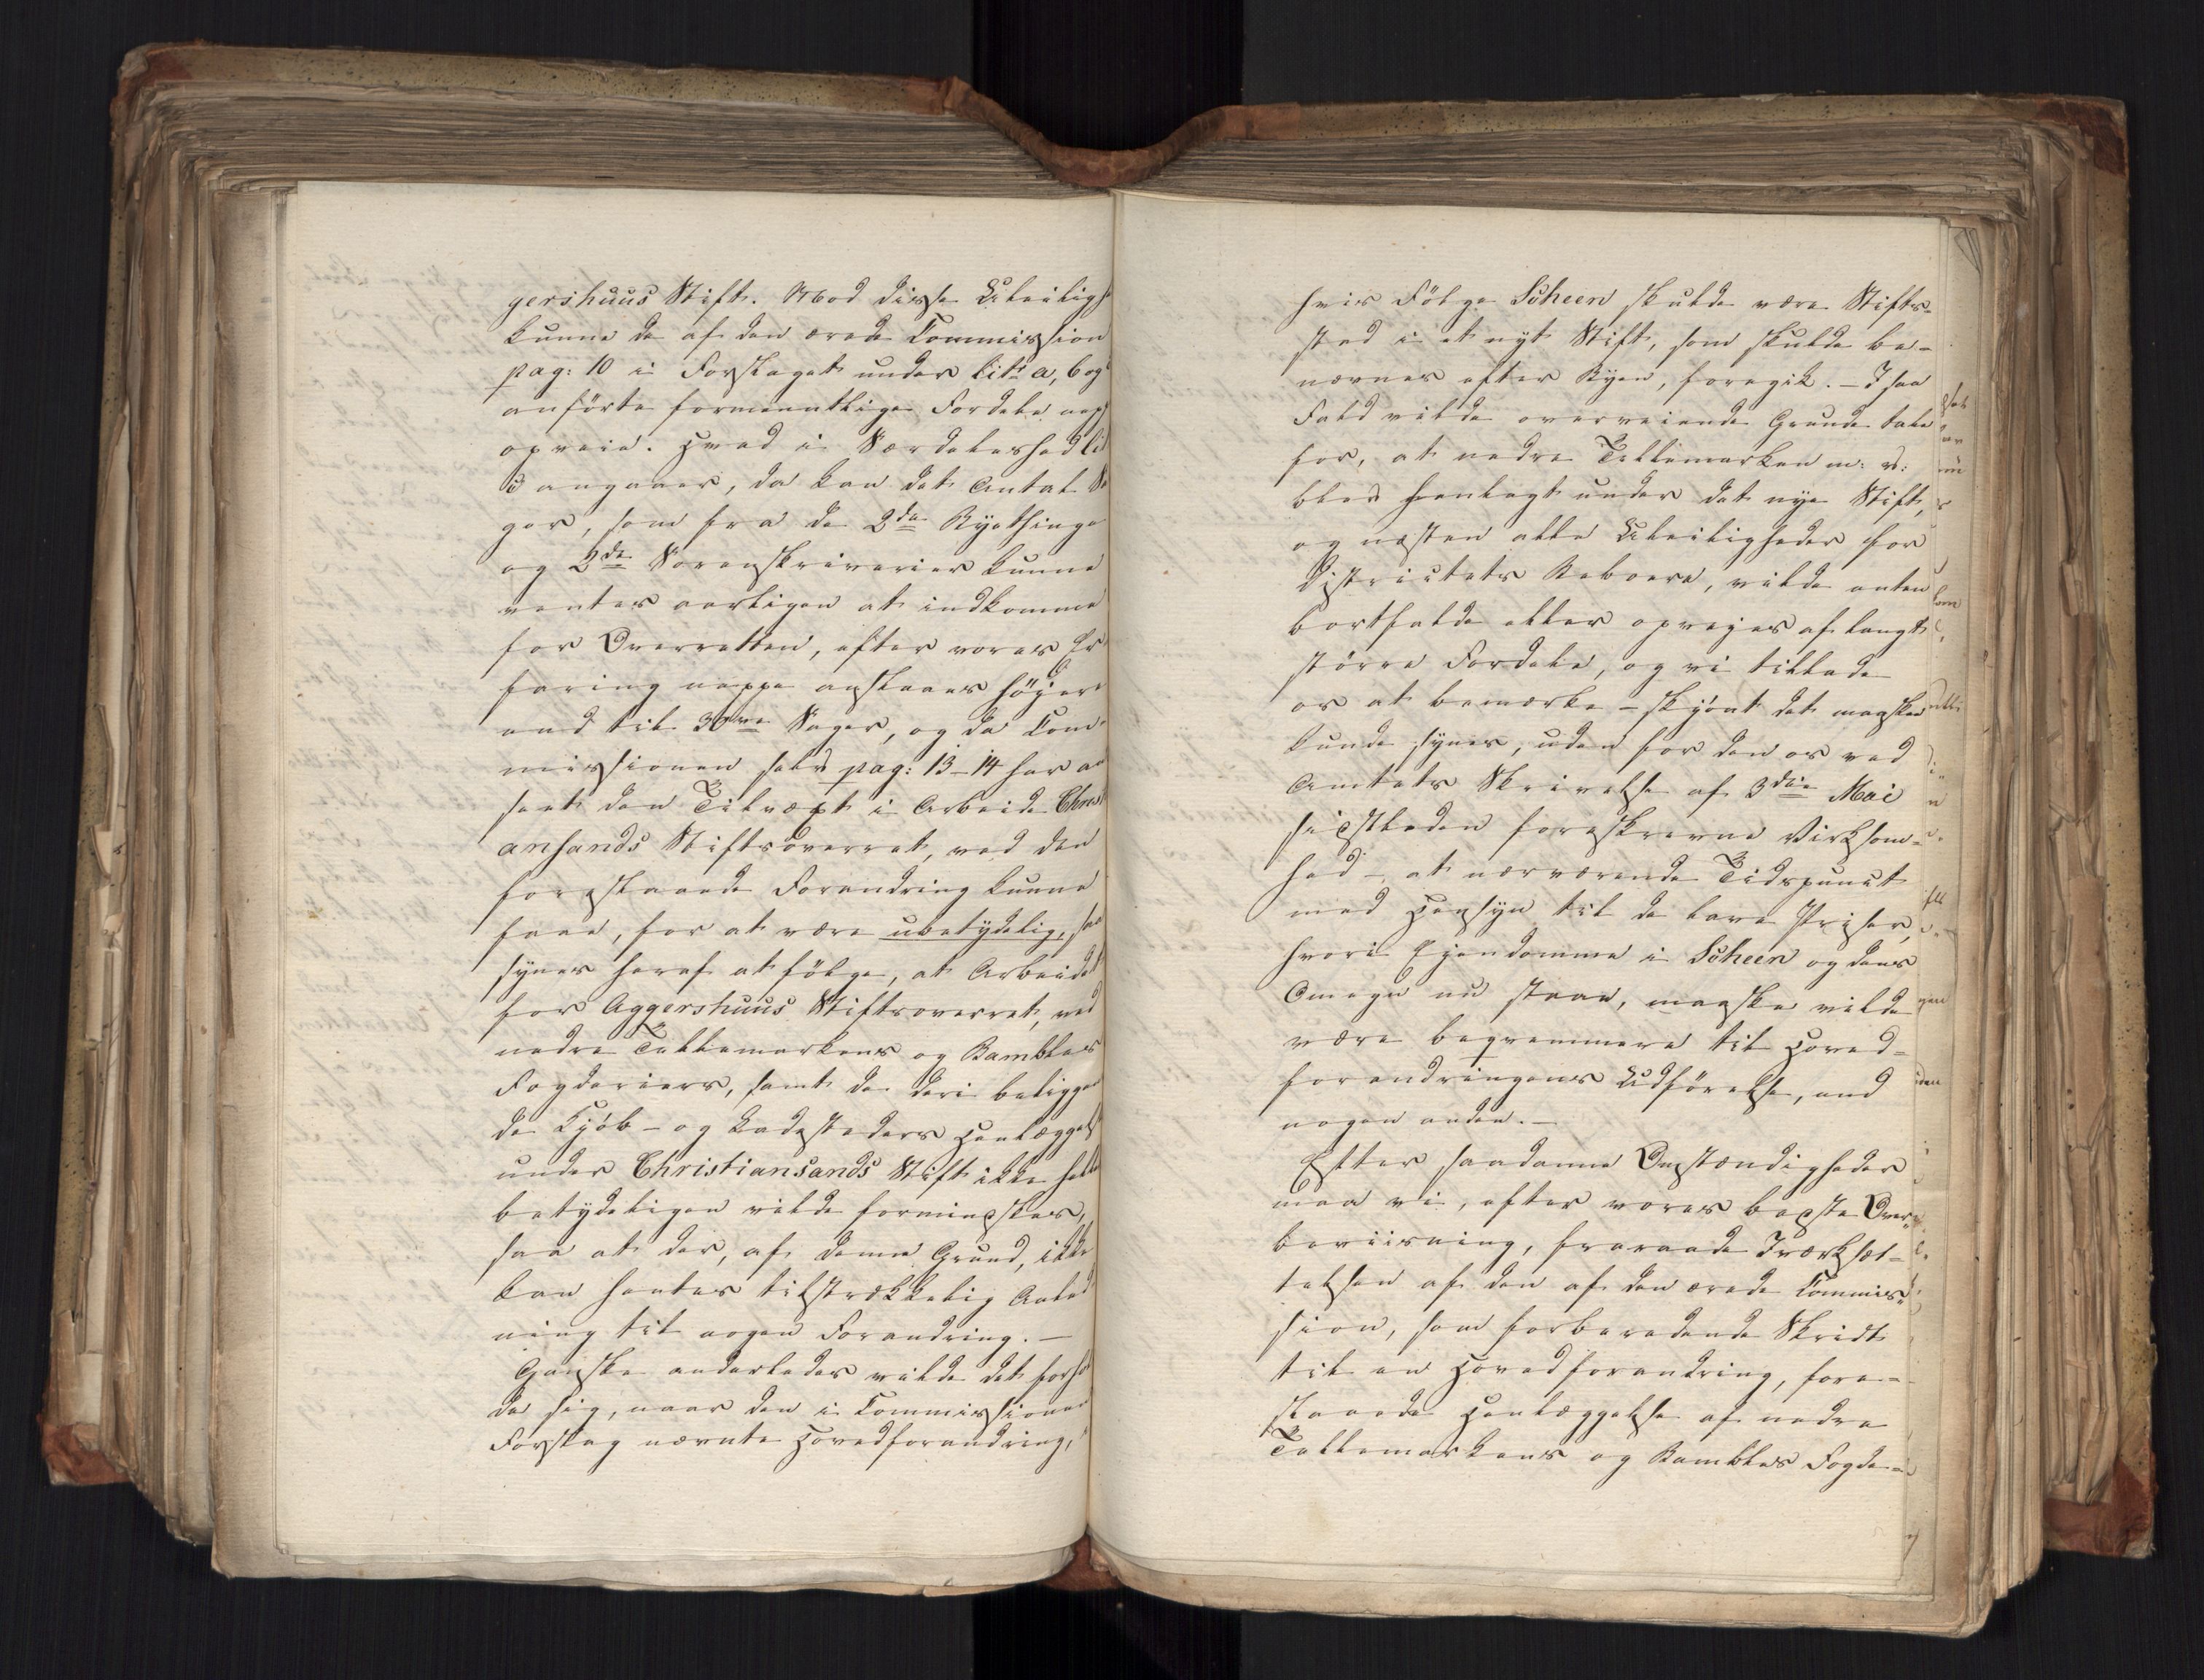 gershuus Stift. Mod disse Uleiligh
kunne de af den ærede Commission
pag: 10 i Forslaget under lit: a, b og
anførte formeentlige Fordele nep
opveie. Hvad i Særdeleshed lit
angaaer, da kan det Antal Sa
ger, som fra de 2de Byethinge
og 2de Sorenskriverier kunne
ventes aarligen at indkomme
for Overretten, efter vores Er
faring neppe anslaaes høyere
end til 30ve Sager, og da Com
missionen selv pag: 13-14 har an
seet den Tilvæxt i Arbeide Christi
ansands Stiftsoverret, ved den
foreslaaede Forandring kunne
faae, for at være ubetydelig, saa
synes heraf at følge, at Arbeidet
for Aggershuus Stiftsoverret, ved
nedre Tellemarkens og Bambles
Fogderiers, samt de deri beliggen
de Kjøb- og Ladestæders Henlæggelse
under Christiansands Stift ikke heller
betydeligen vilde formindskes,
saa at der, af denne Grund, ikke
kan hentes tilstrækkelig Anled
ning til nogen Forandring. -
Ganske anderledes vilde det forhol
de sig, naar den i Commissionens
Forslag nævnte Hovedforandring,
hvis Følge Scheen skulde være Stifts-
sted i et nyt Stift, som skulde be-
nævnes efter Byen, foregik. - I saa
Fald vilde overveiende Grunde tale
for, at nedre Tellemarken m: v:
blev henlagt under det nye Stift,
og næsten alle Uleiligheder for
Districtets Beboere, vilde enten
bortfalde eller opveyes af langt
større Fordele, og vi tillade
os at bemærke - skjønt det maaskee
kunde synes, uden for den os ved
Amtets Skrivelse af 3die Mai
sidstleden foreskrevne Virksom-
hed - at nærværende Tidspunct
med Hensyn til de lave Priser,
hvori Ejendomme i Scheen og dens
Omegn nu staae, maaskee vilde
være beqvemmere til Hoved-
forandringens Udførelse, end
nogen anden. -
Efter saadanne Omstændigheder
maa vi, efter vores bedste Over-
beviisning, fraraade Iværksæt-
telsen af den af den ærede Commis-
sion, som forberedende Skridt
til en Hovedforandring, fore-
slaaede Henlæggelse af nedre
Tellemarkens og Bambles Fogde-